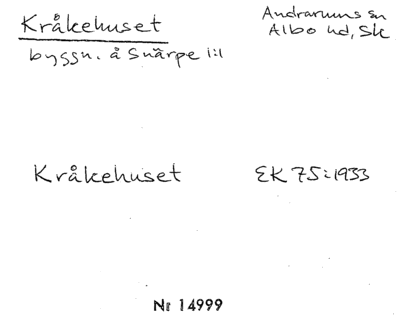 Kråkehuset
Andrarums sn
Albo hd, Sk
byggn. å Snärpe 1:1
Kråkehuset EK 75:1933
Nr 14999